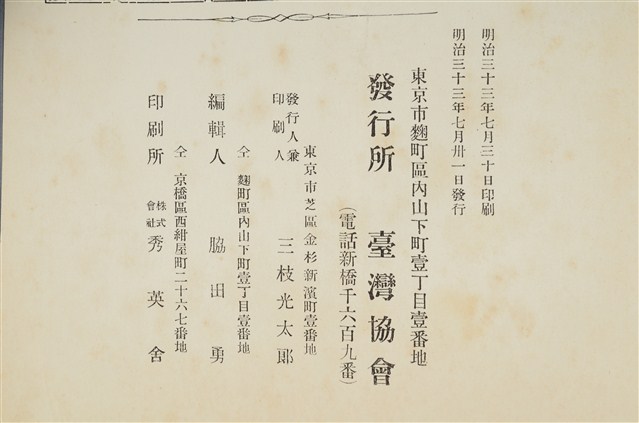 明治三十三年七月三十日印刷
明治三十三年七月卅一日發行
東京市麴町區內山下町壹丁目壹番地
發行所 臺灣協會
(電話新橋千六百九番)
東京市芝區金杉新濱町壹番地
發行人兼
印刷人 三枝光太郞
仝 麴町區內山下町壹丁目壹番地
編輯人 脇田勇
仝 京橋區西紺屋町二十六七番地
印刷所 株式會社 秀英舍